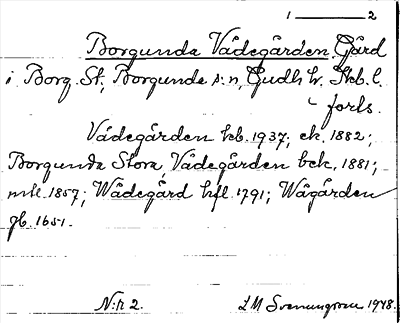 1 ——— 2
Borgunda Vådegården Gård
i Borg. St, Borgunda s:n, Gudh. hr. Skb. l.
forts.
Vådegården kb. 1937; ek. 1882;
Borgunda Stora, Vådegården bek. 1881;
mtl. 1857; Wådegård hfl 1791; Wågården
jb. 1651.
N:r 2. LM Svenungsson 1948.